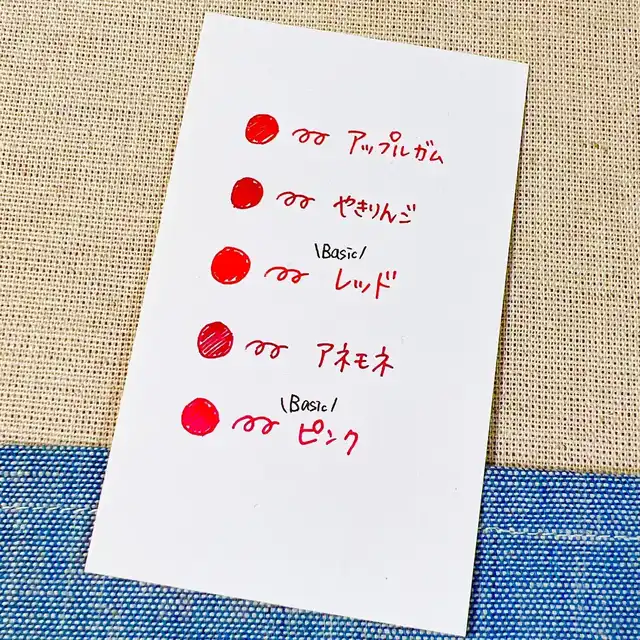 アップルガム
やきりんご
\Basic/
レッド
アネモネ
\Basic/
ピンク